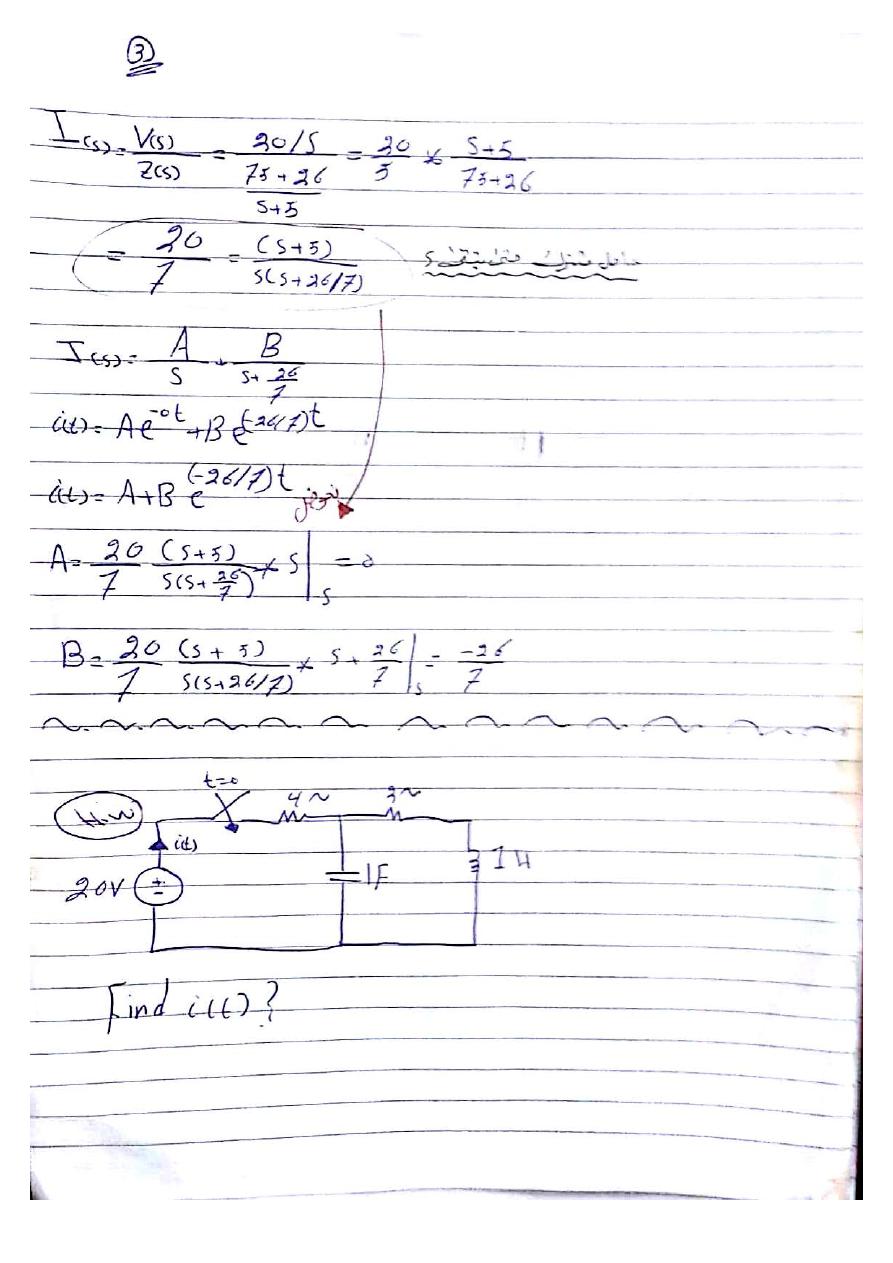 3
I(s) = V(s)/Z(s) = (20/S)/((7S+26)/(S+5)) = 20/S * (S+5)/(7S+26)
= 20/7 = (S+5)/(S(S+26/7))
I(s) = A/S + B/(S+26/7)
i(t) = Ae^-0t + Be^(-26/7)t
i(t) = A+B e^(-26/7)t
نعوض
A = 20/7 (S+5)/(S(S+26/7)) * S |s = 0
B = 20/7 (S+5)/(S(S+26/7)) * S+26/7 |s = -26/7
H.W
t=0
4~ 3~
i(t)
20V + - 1F 1H
Find i(t)?